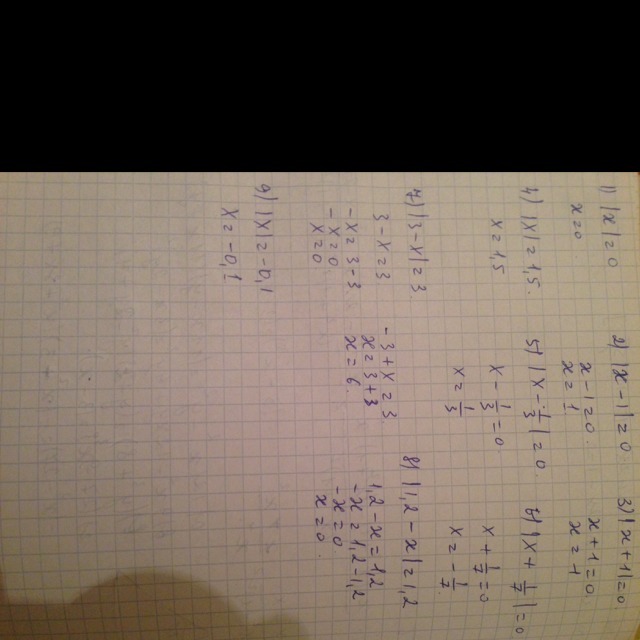 1) |x|=0
x=0
2) |x-1|=0
x-1=0
x=1
3) |x+1|=0
x+1=0
x=1
4) |x|=1,5.
x=1,5
5) |x-1/3|=0
x-1/3=0
x=1/3
6) |x+1/7|=0
x+1/7=0
x=-1/7
7) |3-|=3
3-x=3
-x=3-3
-x=0
x=0
-3+x=3
x=3+3
x=6.
8) |1,2-x|=1,2
1,2-x=1,2
-x=1,2-1,2
-x=0
x=0
9) |x=-0,1
x=-0,1